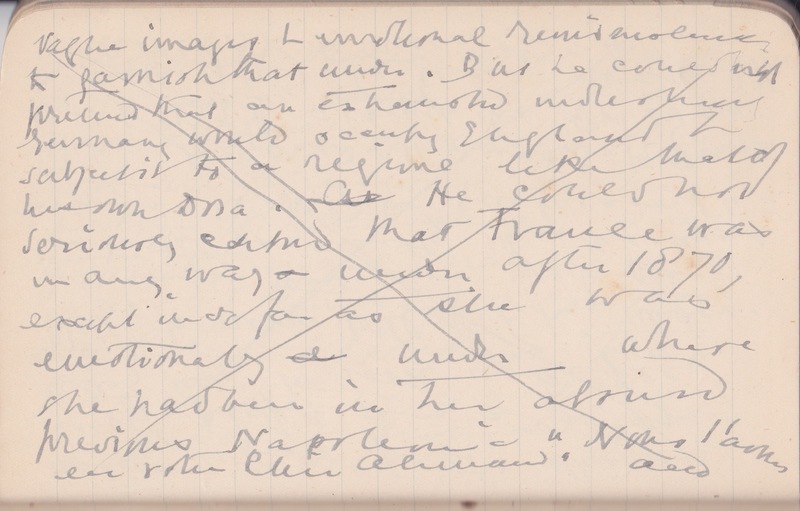 vague images & emotional reminiscences
to garnish that under. But he could not
pretend that an exhausted
Germany would occupy England &
subject it to a regime like that of
his own Dora. He could not
seriously contend that France was
in any way a under after 1870,
except in so far as she was
emotionally under where
she had been in her absurd
previous Napoleonic "Nous l'avons
eu votre Rhin Allemand". and